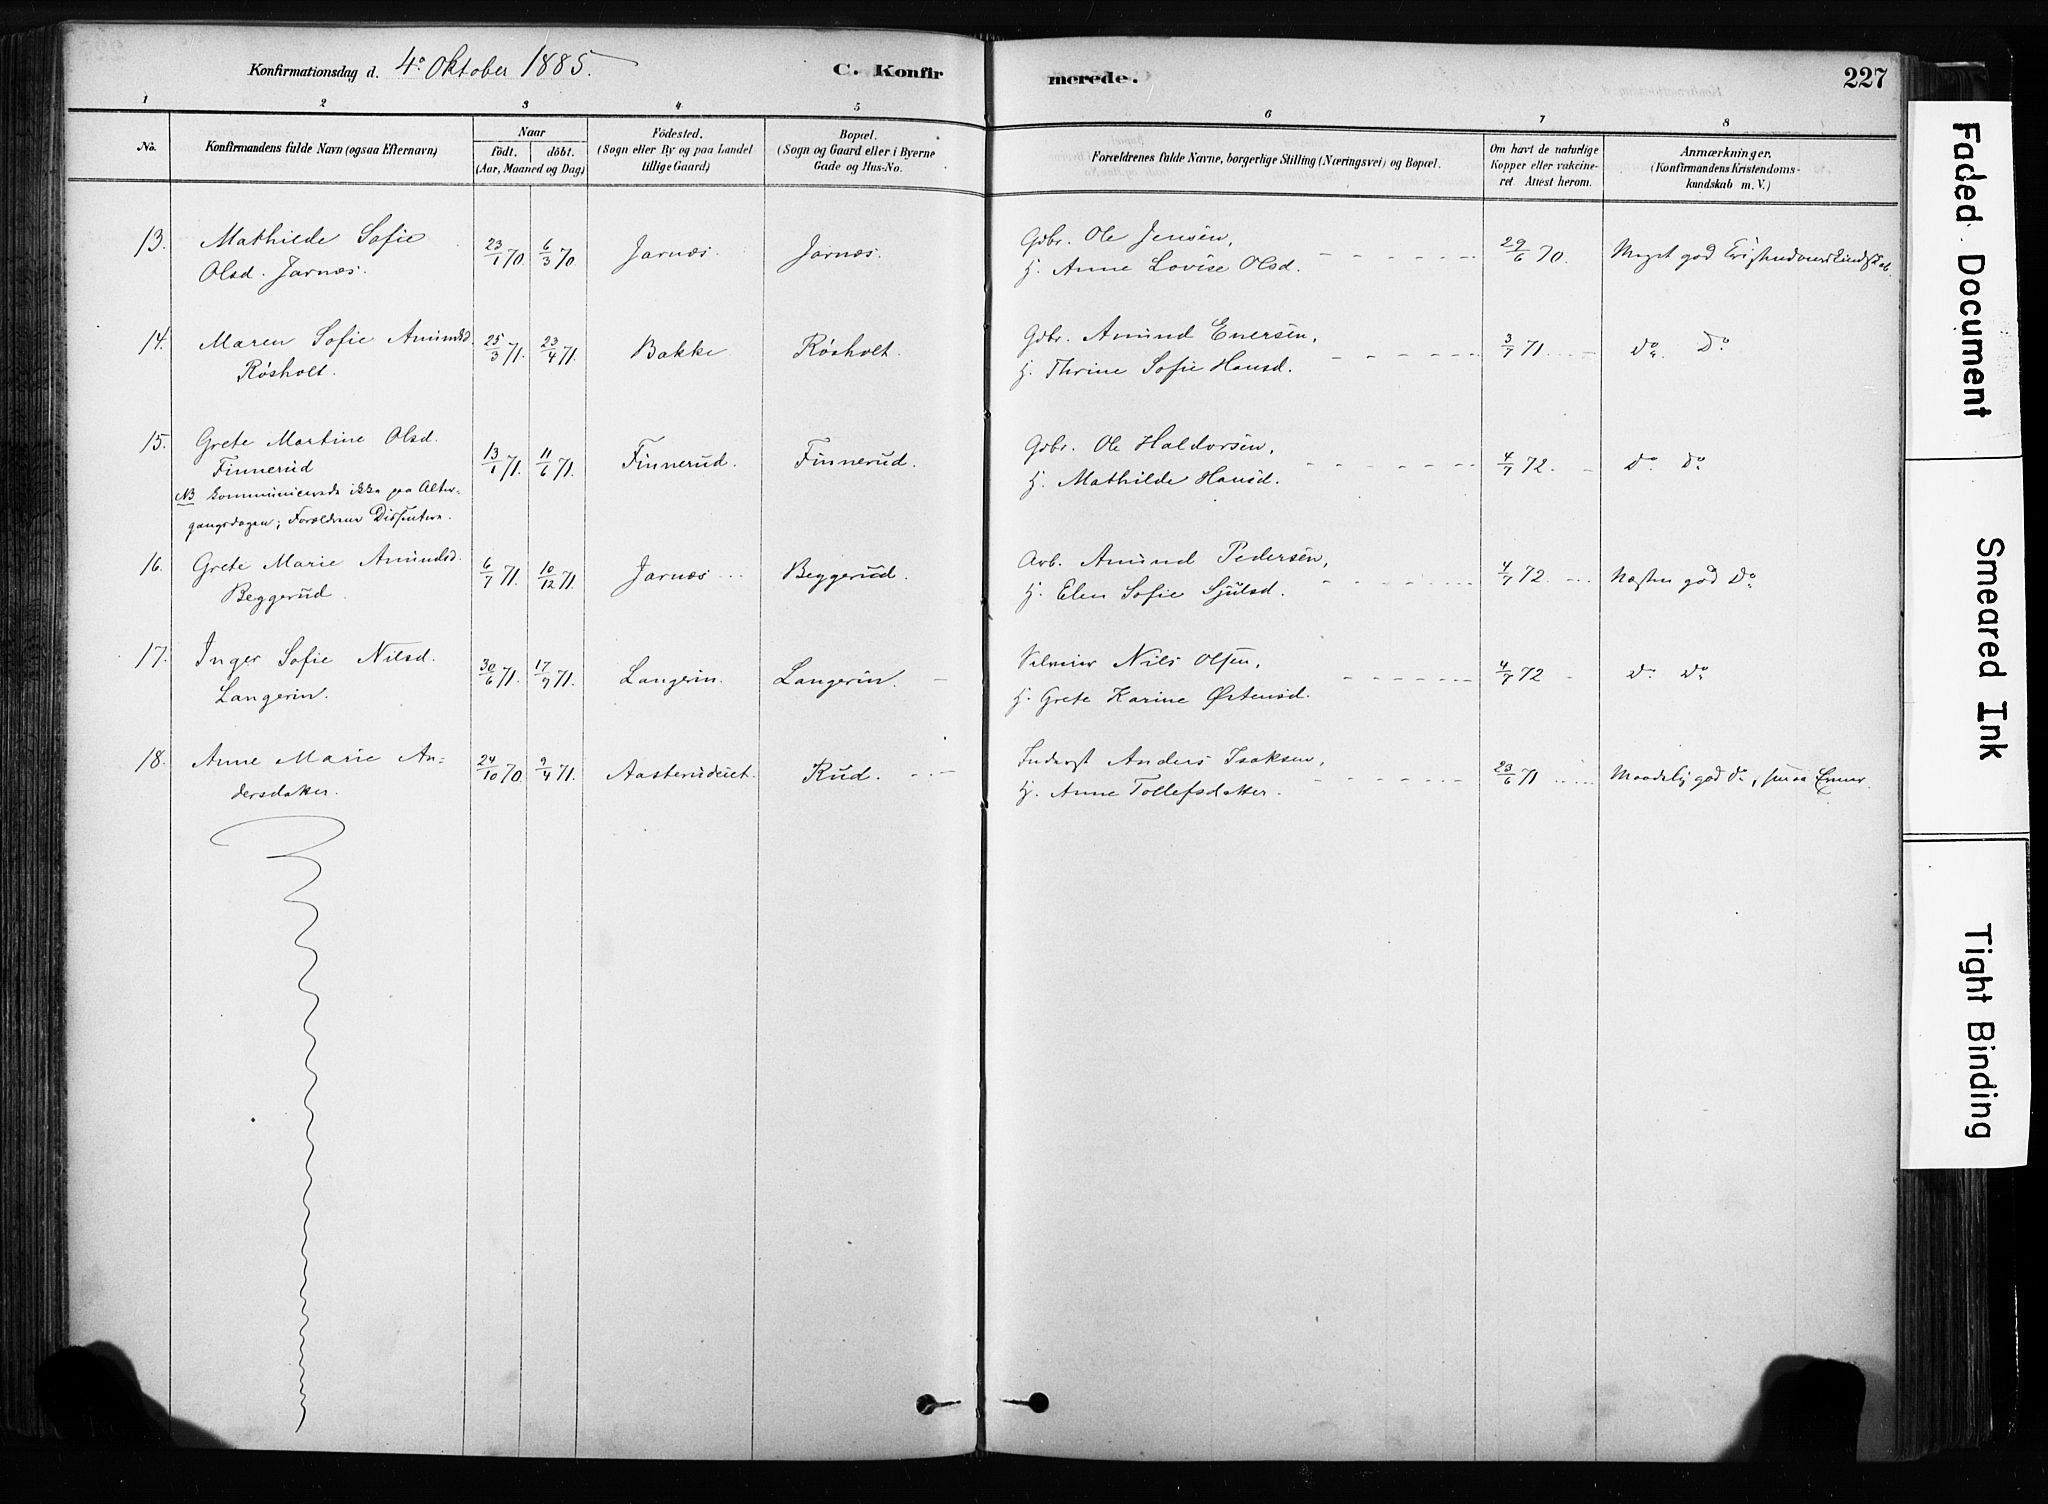 Konfirmationsdag d. 4de Oktober 1885.
C. Konfirmerede.
227
1 2 3 4 5 6 7 8
No.
Konfirmandens fulde Navn (ogsaa Efternavn)
Naar
födt. döbt.
(Aar, Maaned og Dag)
Födested.
(Sogn eller By og paa Landet
tillige Gaard)
Bopæl.
(Sogn og Gaard eller i Byerne
Gade og Hus-No.
Forældrenes fulde Navne, borgerlige Stilling (Næringsvei) og Bopæl.
Om havt de naturlige
Kopper eller vakcine-
ret Attest herom.
Anmærkninger.
(Konfirmandens Kristendoms-
kundskab m. V.)
13. Mathilde Sofie 23/1 70. 6/3 70. Jarnæs. Jarnæs. Gdbr. Ole Jensen, 29/6 70. Meget god Kristendomskundskab.
Olsd. Jarnæs. H. Anne Lovise Olsd.
14. Maren Sofie Amundsd. 25/3 71. 23/4 71. Bakke Røsholt. Gdbr. Amund Enersen, 3/7 71. Do. Do.
Røsholt. H. Thrine Sofie Hansd.
15. Grete Martine Olsd. 13/1 71. 11/6 71. Finnerud. Finnerud. Gdbr. Ole Haldorsen, 4/7 72. Do. Do.
Finnerud H. Mathilde Hansd.
NB kommunicerede ikke paa Alter-
gangsdagen; Forældrene Dissentere.
16. Grete Marie Amundsd. 6/7 71. 10/12 71. Jarnæs Beggerud. Arb. Amund Pedersen, 4/7 72. Næsten god Do.
Beggerud H. Elen Sofie Sjulsd.
17. Inger Sofie Nilsd. 30/6 71. 17/9 71. Langerin. Langerin. Nils Olsen, 4/7 72 Do. Do.
Langerin. H. Grete Karine Østensd.
18. Anne Marie An- 24/10 70. 9/4 71. Aasterudeiet. Rud. Inderst Anders Isaksen, 23/6 71 Maadelig god Do.,
dersdatter. H. Anne Tollefsdatter.
Faded Document
Smeared Ink
Tight Binding